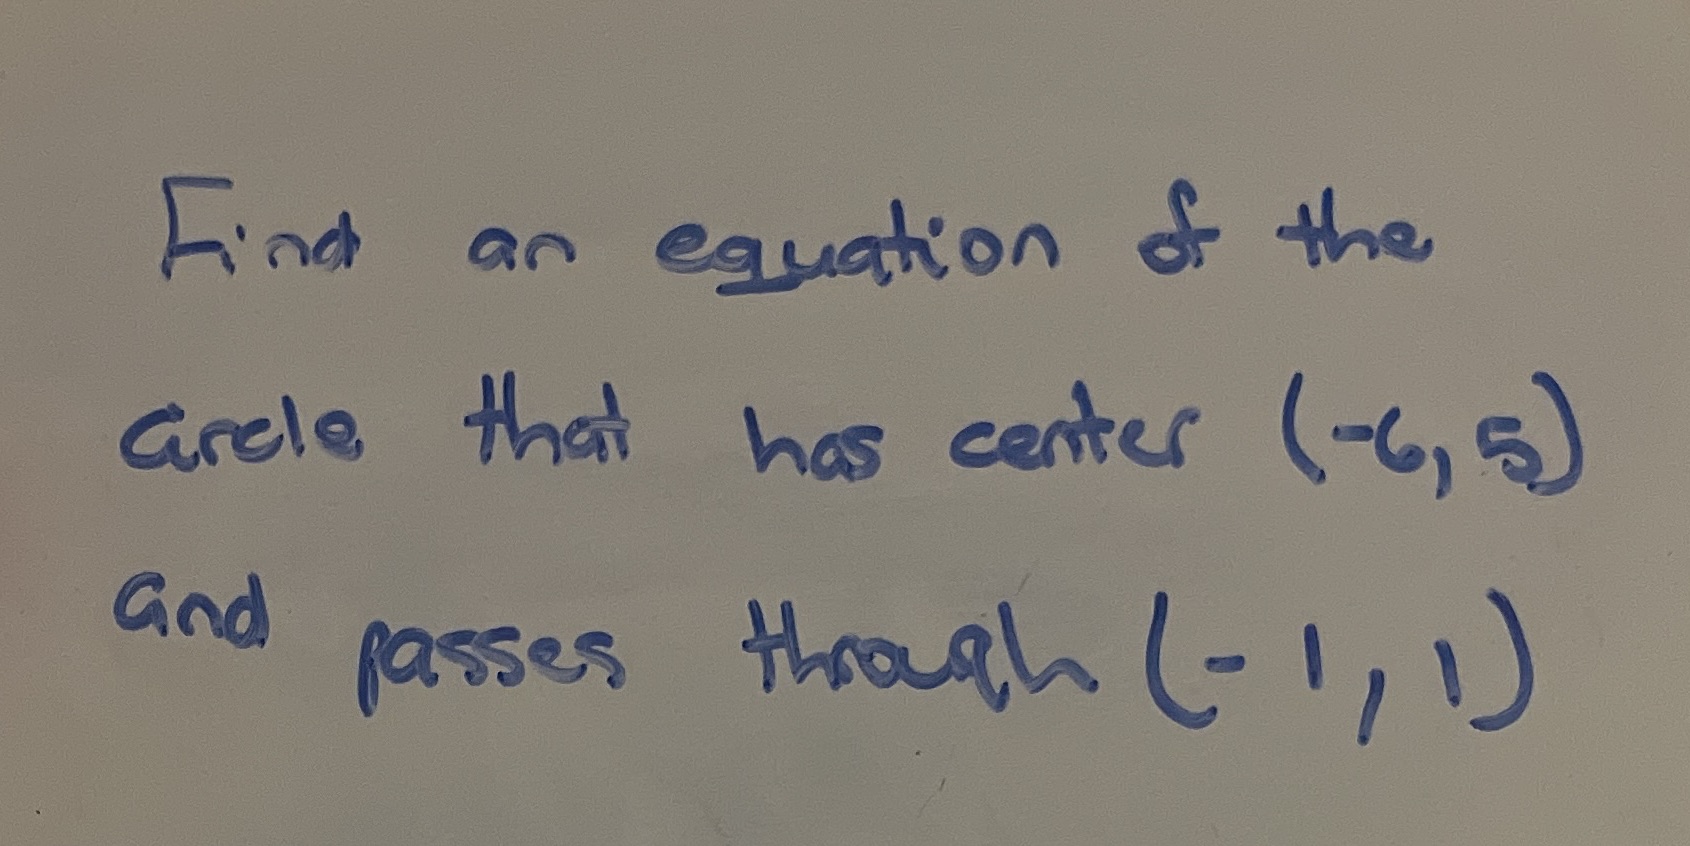 Find an equation of the
circle that has center (-6,5)
and passes through (-1,1)